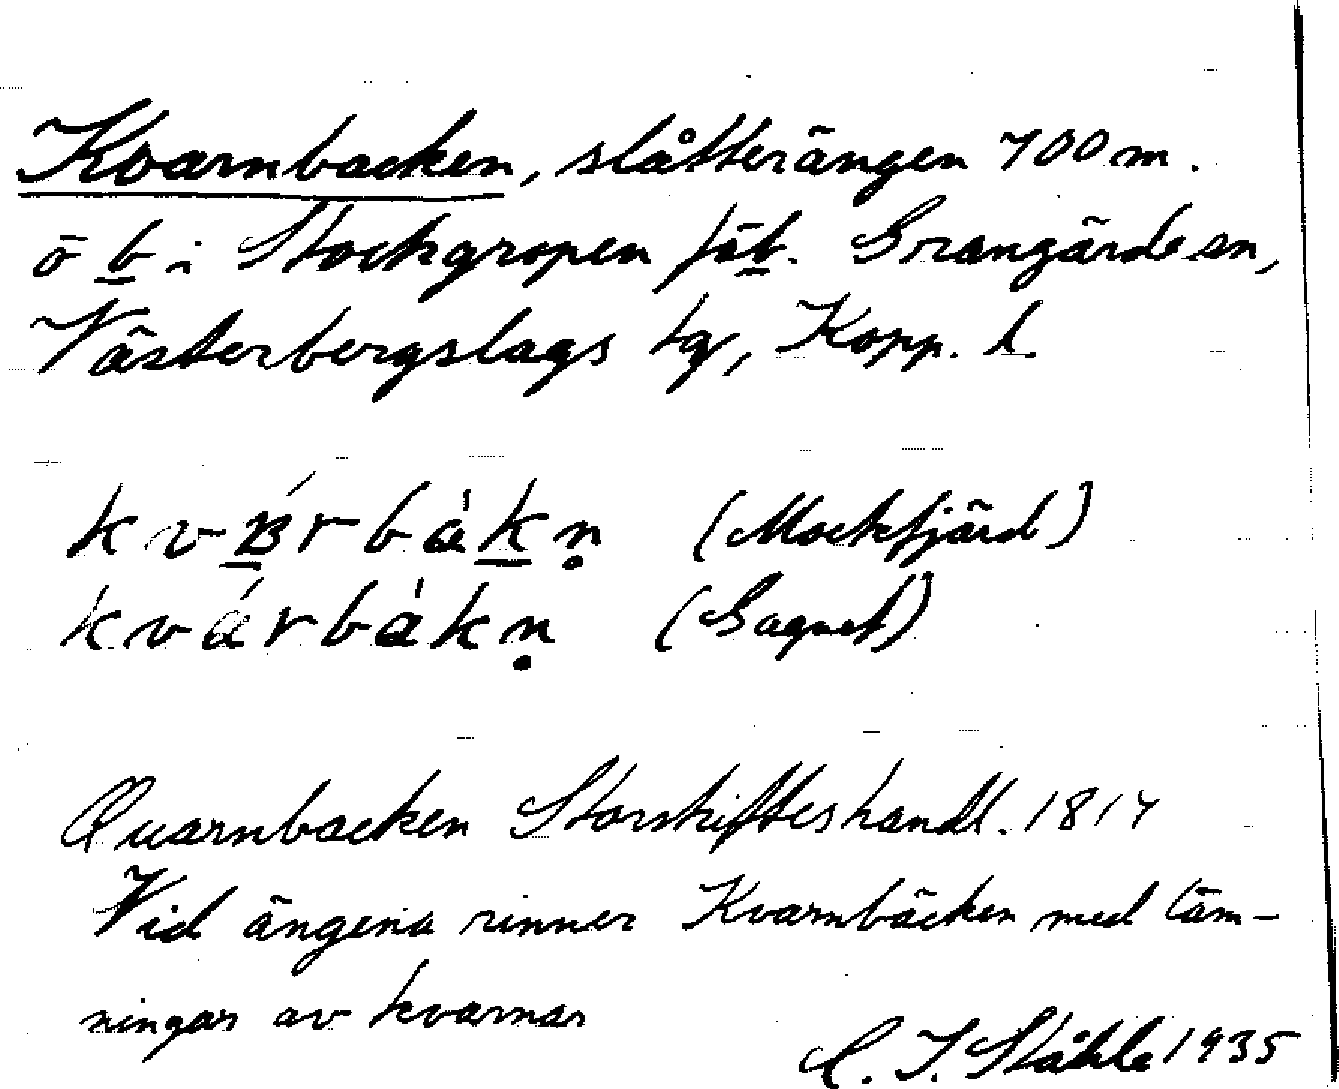 Kvarnbacken, slåtterängen 700 m.
ö b i Stockgropen fäb. Grangärde sn,
Västerbergslags tg, Kopp. l.
kvárbàkṇ (Mockfjärd)
kvárbàkṇ (Gagnef)
Quarnbacken Storskifteshandl. 1817
Vid ängena rinner Kvarnbäcken med läm-
ningar av kvarnar
C. I. Ståhle 1935